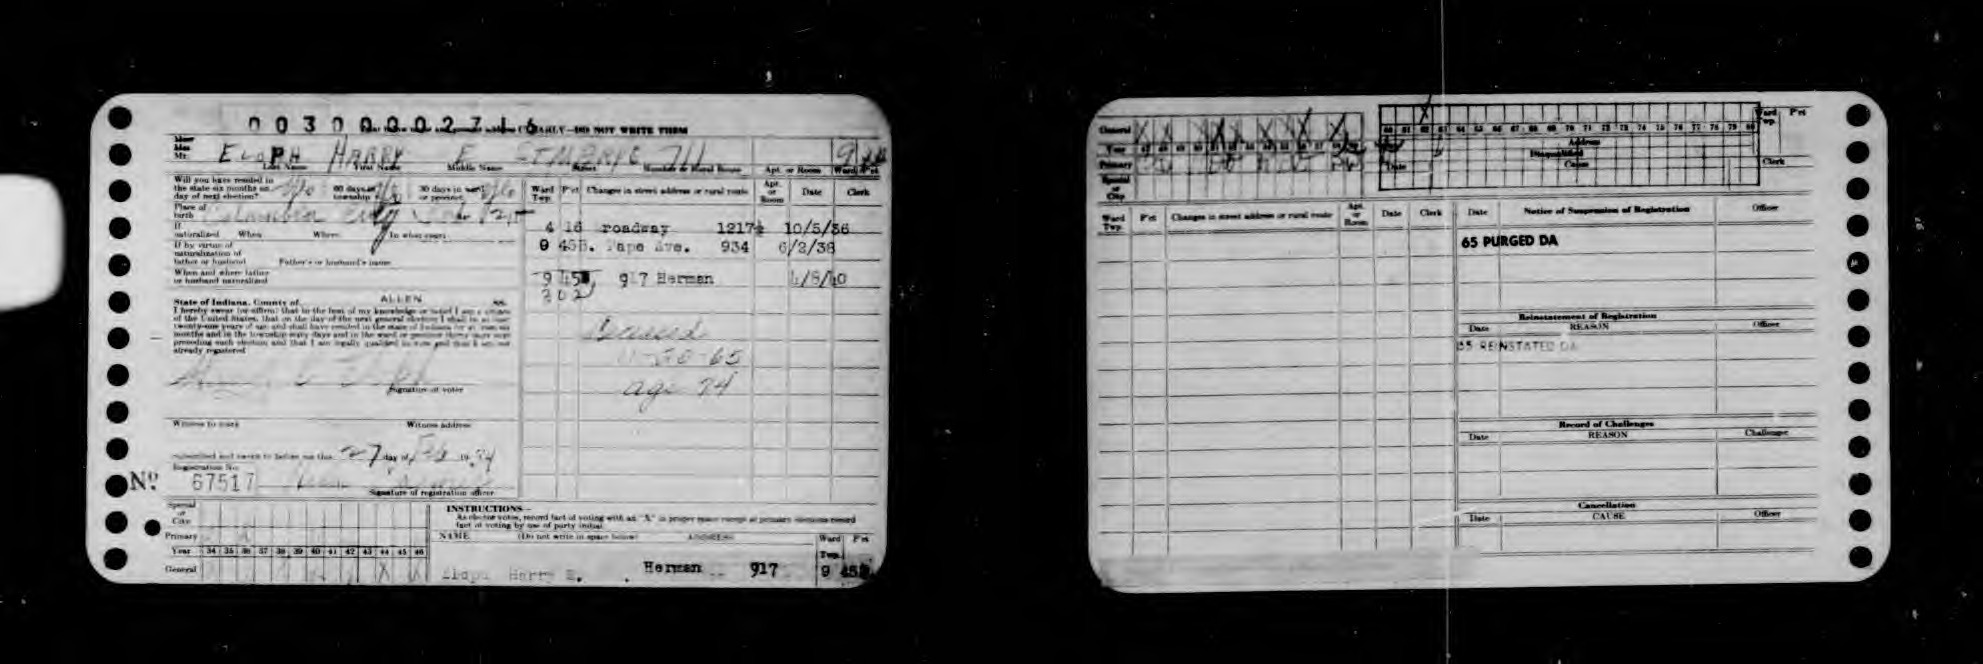 0030000027 6 EARLY—DO NOT WRITE THEM
Mr. ELOPH HARRY E ST MARYS 711 9
Last Name First Name Middle Name Street Number or Rural Route Apt. or Room Ward P'ct
Will you have resided in the state six months on day of next election? 60 days in township 30 days in ward or precinct
Place of birth Columbia City
If naturalized When Where In what court
If by virtue of naturalization of father or husband Father's or husband's name
When and where father or husband naturalized
State of Indiana, County of ALLEN ss.
I hereby swear (or affirm) that to the best of my knowledge or belief I am a citizen
of the United States, that on the day of the next general election I shall be at least
twenty-one years of age and shall have resided in the state of Indiana for at least six
months and in the township sixty days and in the ward or precinct thirty days next
preceding such election and that I am legally qualified to vote and that I am not
already registered
Signature of voter
Witness to mark Witness address
Subscribed and sworn to before me this 27 day of 19 34
Registration No.
No. 67517
Signature of registration officer
Ward Twp. P'ct Changes in street address or rural route Apt. or Room Date Clerk
4 16 roadway 1217½ 10/5/36
9 45 S. Pape Ave. 934 6/2/38
9 45 917 Herman 4/8/40
302
Deceased
11-30-65
age 74
Special or City
Primary
Year 34 35 36 37 38 39 40 41 42 43 44 45 46
General X X
INSTRUCTIONS—
As elector votes, record fact of voting with an "X" in proper space except at primary elections record
fact of voting by use of party initial
NAME (Do not write in space below) ADDRESS Ward Twp. P'ct
Eloph Harry E. Herman 917 9 45
General X X X X X X X
Year
Primary
Special or City
60 61 62 63 64 65 66 67 68 69 70 71 72 73 74 75 76 77 78 79 80 Ward Twp. P'ct
Address
Disqualified
Date Cause Clerk
Ward Twp. P'ct Changes in street address or rural route Apt. or Room Date Clerk
Date Notice of Suspension of Registration Officer
65 PURGED DA
Reinstatement of Registration
Date REASON Officer
65 REINSTATED DA
Record of Challenges
Date REASON Challenger
Cancellation
Date CAUSE Officer